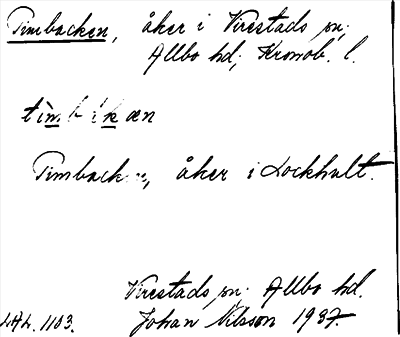 Timbacken, åker i Virestads sn;
Allbo hd; Kronob. l.
Timback n, åker i Lockhult.
Virestads sn; Allbo hd.
L.A.L. 1103. Johan Nilsson 1937.